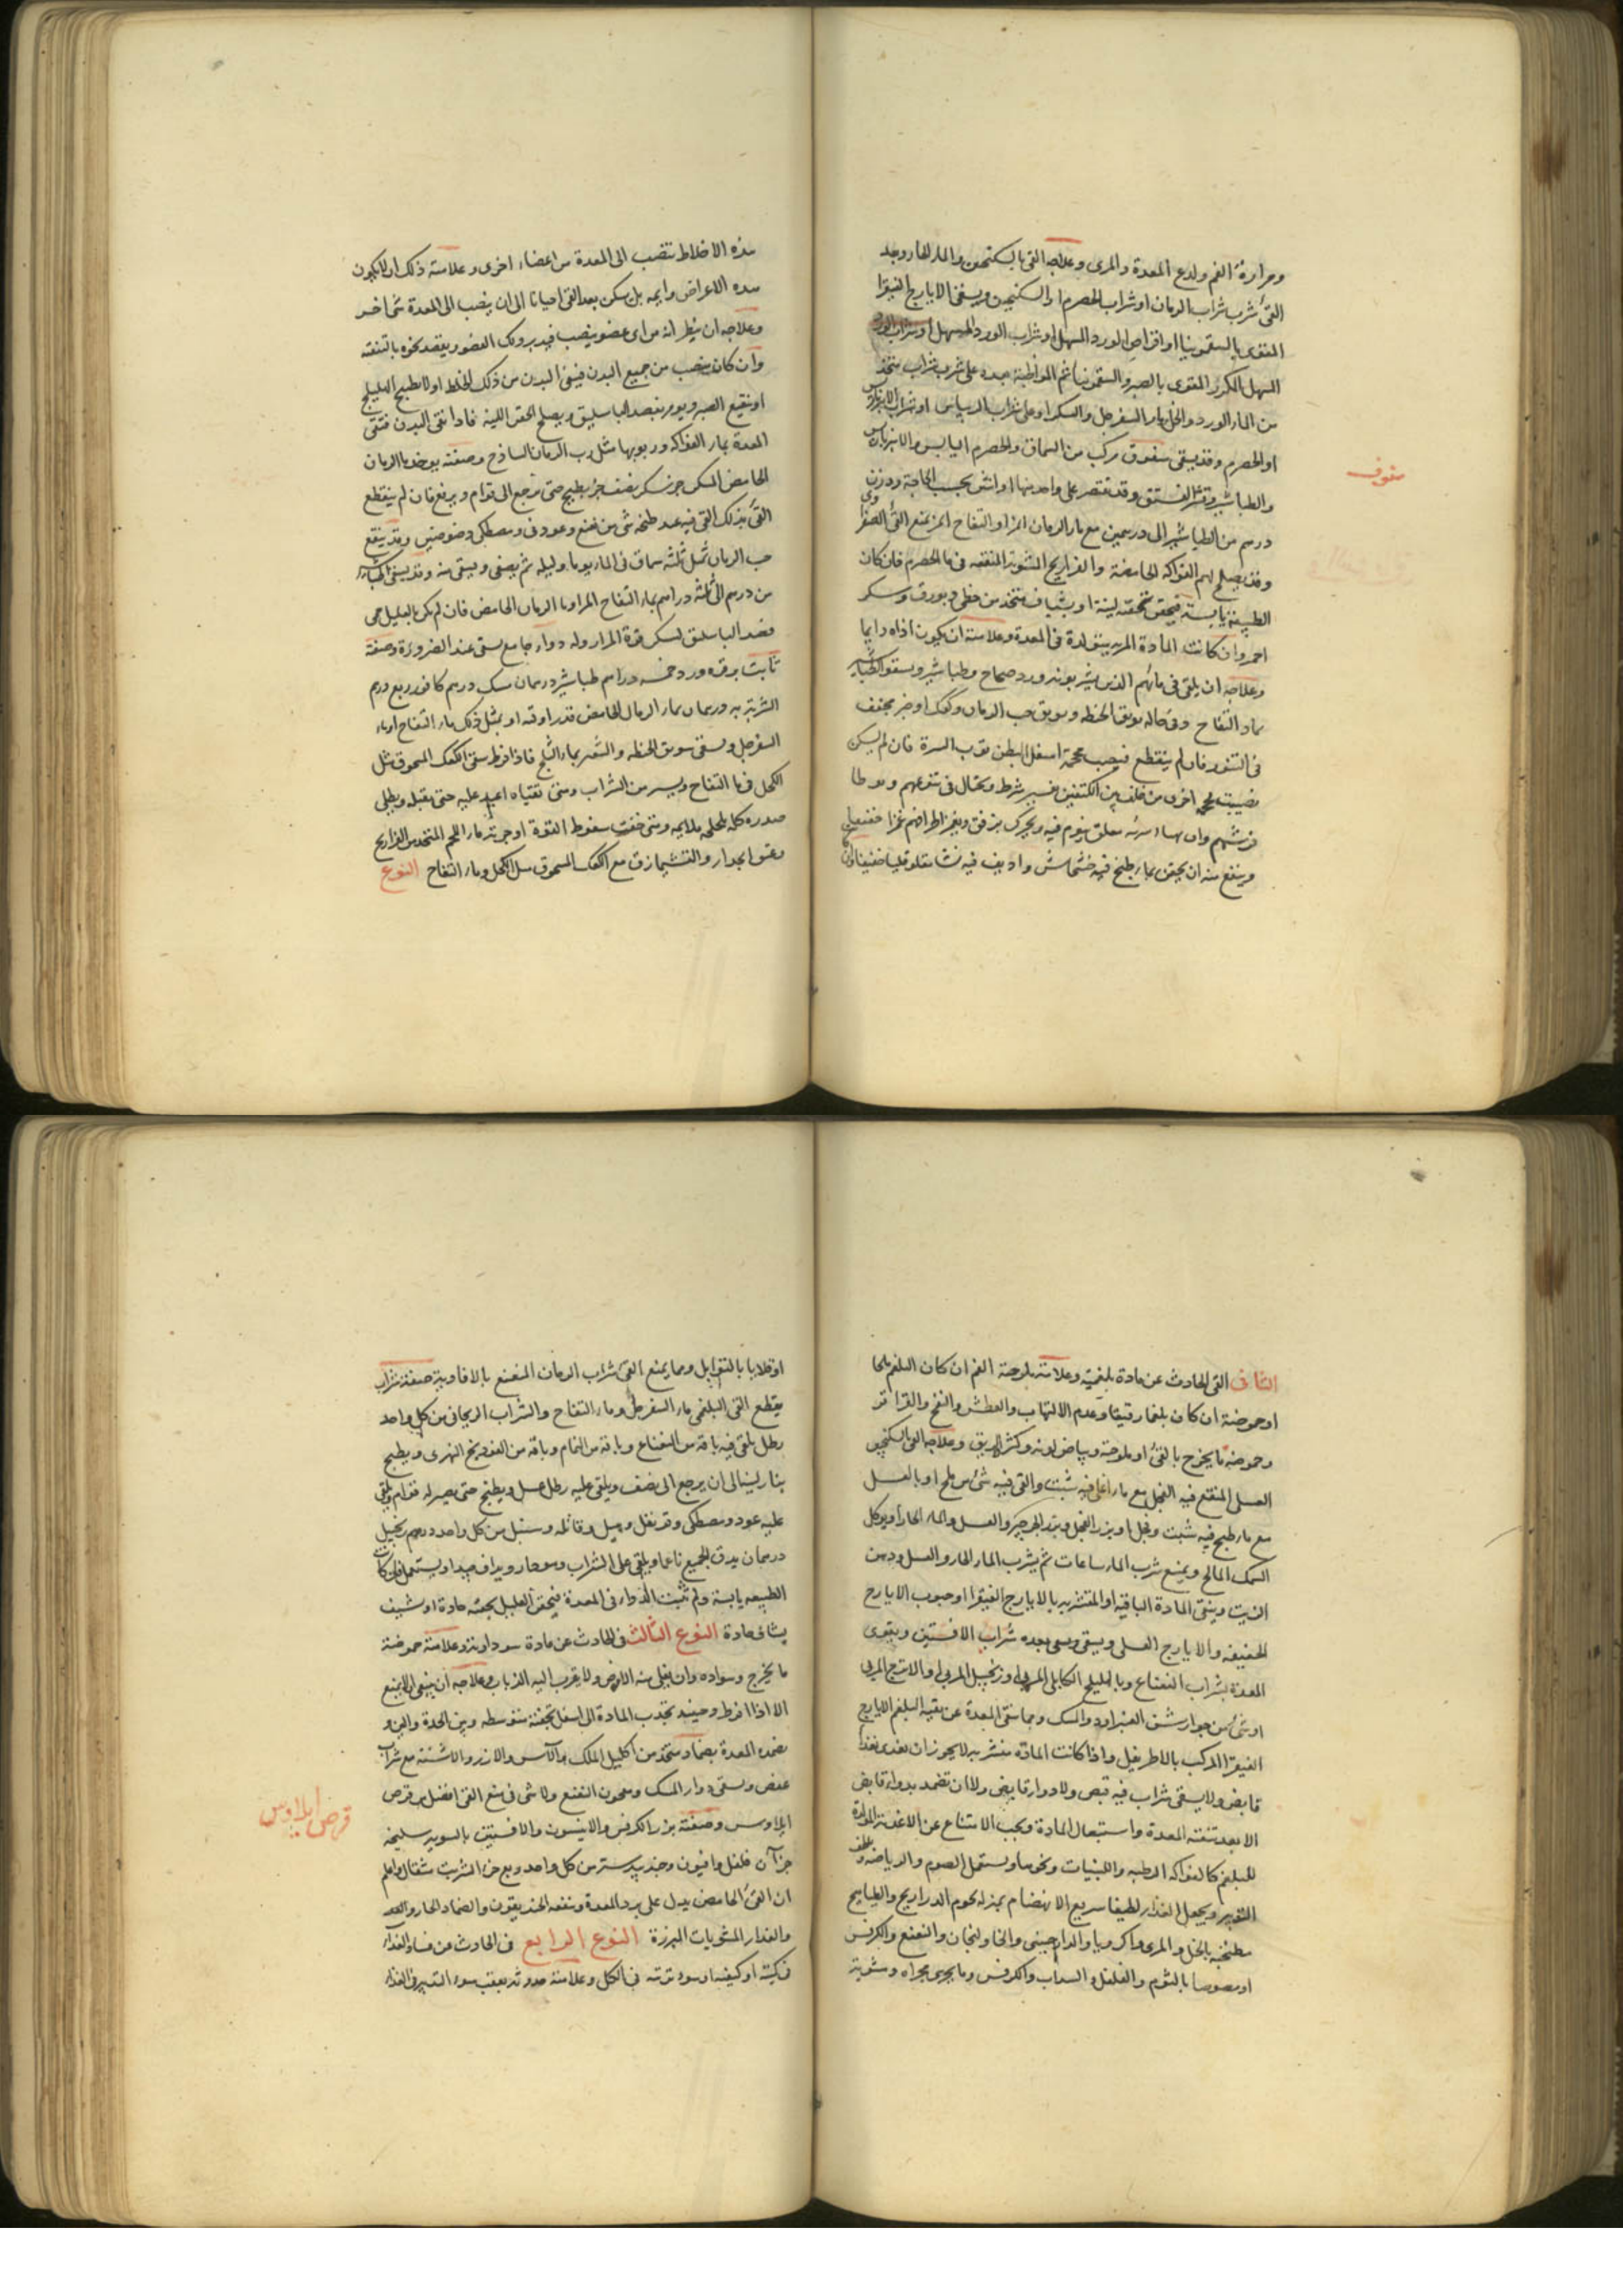 ومرارة الفم ولدع المعدة والمرى وعلاجه القى بالسكنجبين والماء الحار وبعد
القئ شرب شراب الرمان او شراب الحصرم او السكنجبين ويسقى الايارج الفيقرا
المقوى بالسقمونيا او اقراص الورد المسهل او شراب الورد المسهل او شراب الورد
المسهل المكرر المقوى بالصبر والسقمونيا ثم المواظبة بعده على شرب شراب متخذ
من الماء الورد والخل وماء السفرجل والسكر او على شراب الريباس او شراب الانبرباريس
او الحصرم وقد يسقى سفوف مركب من السماق والحصرم اليابس والانبرباريس
سفوف
والطباشير وقشر الفستق وقد يقتصر على واحد منها او اثنين بحسب الحاجة ووزن
درهم من الطباشير الى درهمين مع ماء الرمان المز او التفاح المز يمنع القئ الصفراوى
وقد يصلح لهم الفواكه الحامضة والفراريج المشوية المنقعه فى ماء الحصرم فان كان
الطبيعة يابسة فيحقن بحقنه لينة او بشياف متخذ من خطمى وبورق وسكر
احمر وان كانت المادة المرية يتولدة فى المعدة وعلامته ان يكون اذاه دايما
وعلاجه ان يلقى فى مائهم الذين يشربونه ورد صحاح وطباشير ويسقوا الطباشير
بماء التفاح وفى حاله سويق الحنطه وسويق حب الرمان وكعك او خبز مجفف
فى التنور فان لم ينقطع فيجب محجمة اسفل البطن بقرب السرة فان لم يسكن
نصبت محجمة اخرى من خلف بين الكتفين بغير شرط ويحتال فى تنويمهم ويوطا
فرشهم وان معلق ينوم فيه ويحرك برفق ويغمز اطرافهم غمزا خفيفا
وينفع منه ان يحقن بماء طبخ فيه خشخاش واديف فيه نشا مقلو قليا خفيفا وان كان
هذه الاخلاط تنصب الى المعدة من اعضاء اخرى وعلامة ذلك ان لا يكون
هذه الاعراض دايمه بل يسكن بعد القى احيانا الى ان ينصب الى المعدة شئ اخر
وعلاجه ان ينظر انه من اى عضو ينصب فيدبر ذلك العضو ويقصد نحوه بالتنقيه
وان كان ينصب من جميع البدن فينقى البدن من ذلك الخلط اولا بطبيخ الهليلج
او نقيع الصبر ويومر بفصد الباسليق ويصلح الحقن اللينه فاذا نقى البدن فتنقى
المعدة بماء الفواكه وربوبها مثل رب الرمان الساذج وصفته يوخذ ماء الرمان
الحامض المسكر جزء سكر نصف جزء يطبخ حتى يرجع الى قوام ويرفع فان لم ينقطع
القئ بذلك القى فيه عند طبخه شئ من نعنع وعود فى ومصطكى وقد ينقع
حب الرمان ثلثه سماق فى الماء يوما وليله ثم يصفى ويسقى منه وقد يسقى الطباشير
من درهم الى ثلثه دراهم بماء التفاح المر او ماء الرمان الحامض فان لم يكن بالعليل حمى
فصد الباسليق لتسكن قوة المرار وله دواء جامع يسقى عند الضرورة وصفته
ثابت بن قره ورد خمسه دراهم طباشير درهمان سك درهم كافور ربع درهم
الشربة به درهمان بماء الرمان الحامض قدر اوقيه او بمثل ذلك ماء التفاح او ماء
السفرجل ويسقى سويق الحنطه والشعير بماء الثلج فاذا فرط سقى الكعك المسحوق مثل
الكحل فى ماء التفاح ويسير من الشراب ومتى تقتياه اعيد عليه حتى يقبله ويطلى
صدره كله ملايمه ومتى خفت سقوط القوة اوجرته ماء اللحم المتخذ من الفراريج
وعنق الجداء مع الكعك المسحوق مثل الكحل وماء التفاح النوع
الثانى القى الحادث عن مادة بلغمية وعلامته ملوحة الفم ان كان البلغم مالحا
او حموضته ان كان بلغما رقيقا وعدم الالتهاب والعطش والنفخ والقراقر
وحموضة ما يخرج بالقئ او ملوحته وبياض لونه وكثرة الريق وعلاجه القى بالسكنجبين
العسلى المنقع فيه الفجل مع ماء اغلى فيه شبث والقى فيه شئ من ملح او بالعسل
مع ماء طبخ فيه شبث وفجل او بزر الفجل وبزر الجرجير والعسل والماء الحار او يوكل
السمك المالح ويمنع شرب الماء ساعات ثم يشرب الماء الحار والعسل ودهن
الزيت وينقى المادة الباقية او المتشربه بالايارج الفيقرا او حبوب الايارج
الخفيفه والايارج العسلى ويسقى بعده شراب الافسنتين ويقوى
المعدة بشراب النعناع وبالهليلج الكابلى المربى او زنجبيل المربى او الاترج المربى
او شئ من جوارشن العنبر او دواء المسك ومما ينقى المعدة عن بقية البلغم الايارج
الفيقرا المركب بالاطريفل واذا كانت المادة متشربه لا يجوز ان يغذى بغذاء
قابض ولا يسقى شراب فيه قبض ولا دواء قابض ولا ان تضمد بدواء قابض
الا بعد تنقيه المعدة واستيصال المادة ويجب الامتناع عن الاغذية المولدة
للبلغم كالفواكه الرطبه واللبنيات ونحوها ويستعمل الصوم والرياضه ولطف
التدبير ويجعل الغذاء لطيفا سريع الانهضام بمنزله لحوم الدراريج والطياهيج
مطبخه بالخل والمرى وكرويا والدارصينى والخاولنجان والنعنع والكرفس
او مصوصا بالثوم والفلفل والسداب والكرفس وما يجرى مجراه ومشوية
او قلايا بالتوابل ومما يمنع القئ شراب الرمان المنعنع بالافاويه صفة شراب
يقطع القئ البلغمى ماء السفرجل وماء التفاح والشراب الريحانى من كل واحد
رطل يلقى فيه باقة من النعناع وباقة من النمام وباقة من الفودنج النهرى ويطبخ
بنار لينه الى ان يرجع الى نصف ويلقى عليه رطل عسل ويطبخ حتى يصير له قوام ويلقى
عليه عود ومصطكى وقرنفل وهيل وقاقله وسنبل من كل واحد درهم زنجبيل
درهمان يدق الجميع ناعما ويلقى على الشراب وهو حار ويداف جيدا ويستعمل فان كانت
الطبيعه يابسة ولم تثبت الدواء فى المعدة فيحقن العليل بحقنه حادة او شيف
بشياف حادة النوع الثالث فى الحادث عن مادة سوداوية وعلامته حموضة
ما يخرج وسواده وان يغلى منه الارض ولا يقرب اليه الذباب وعلاجه ان ينبغى ان لا يمنع
الا اذا افرط وحينيذ تجذب المادة الى اسفل بحقنة متوسطه وبين الحدة واللين و
يضمد المعدة بضماد متخذ من اكليل الملك والآس والاشنه مع شراب
عفص ويسقى دواء المسك ومعجون النعنع ولا شى فى منع القئ افضل من قرص
قرص ايلاوس
ايلاوس وصفته بزر الكرفس والانيسون والافسنتين بالسويه سليخه
جزآن فلفل وافيون وجندبيدستر من كل واحد ربع جزء الشربة مثقال واعلم
ان القئ الحامض يدل على برد المعدة ومنفعه الخنديقون والضماد الحار
والغذاء المشويات المبزرة النوع الرابع فى الحادث من فساد الغذاء
فى كميته او كيفيته او سوء ترتيبه فى الاكل وعلامته حدوثه بعقب سوء التدبير فى الغذاء